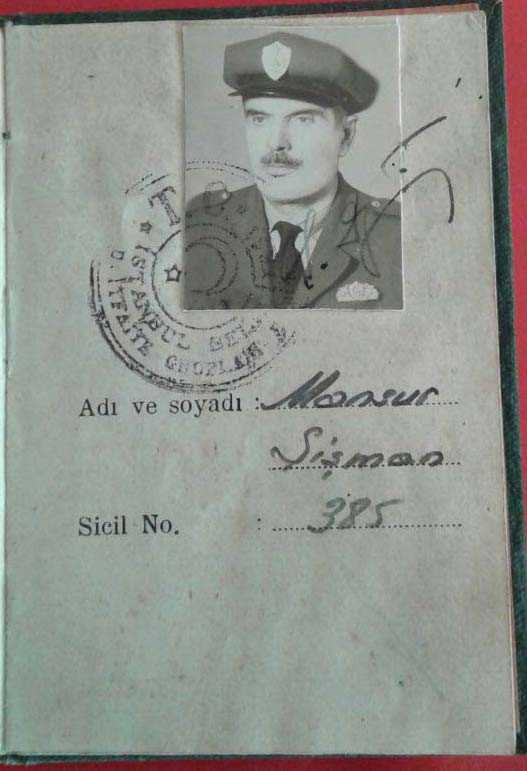 T. C.
İSTANBUL BEL
İTFAİYE GRUPLARI
Adı ve soyadı : Mansur
Şişman
Sicil No. : 385